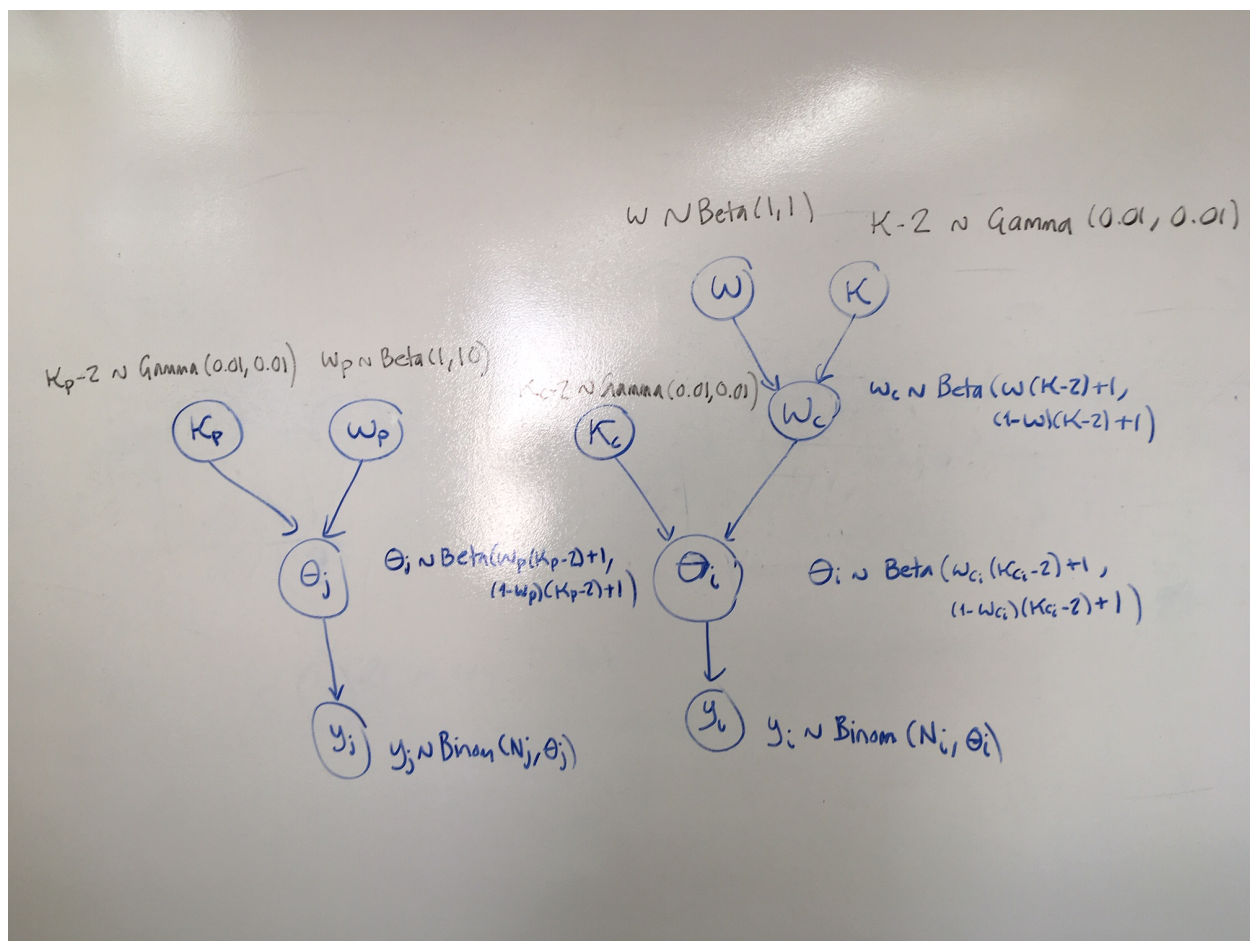 ω ~ Beta(1,1)
K-2 ~ Gamma (0.01, 0.01)
ω
K
Kp-2 ~ Gamma(0.01, 0.01)
ωp ~ Beta(1,10)
Kc-2 ~ Gamma(0.01, 0.01)
ωc ~ Beta(ω(K-2)+1,
(1-ω)(K-2)+1)
Kp
ωp
Kc
ωc
θj
θj ~ Beta(ωp(Kp-2)+1,
(1-ωp)(Kp-2)+1)
θi
θi ~ Beta(ωci(Kci-2)+1,
(1-ωci)(Kci-2)+1)
yj
yj ~ Binom(Nj, θj)
yi
yi ~ Binom(Ni, θi)